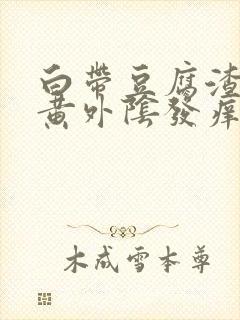 白帶豆腐渣
黃外陰發痒
木成雪本尊